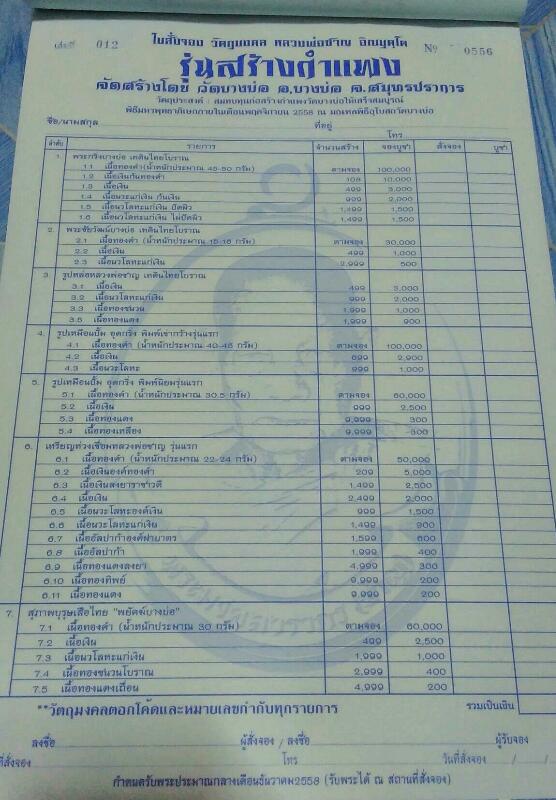 เล่มที่ 012 ใบสั่งจอง วัตถุมงคล หลวงพ่อชาญ อิณมุตโต Nº 0556
รุ่นสร้างกำแพง
จัดสร้างโดย วัดบางบ่อ อ.บางบ่อ จ.สมุทรปราการ
วัตถุประสงค์ : สมทบทุนก่อสร้างกำแพงวัดบางบ่อให้เสร็จสมบูรณ์
พิธีมหาพุทธาภิเษกภายในเดือนพฤศจิกายน 2558 ณ มณฑลพิธีอุโบสถวัดบางบ่อ
ชื่อ/นามสกุล ที่อยู่
โทร
ลำดับ รายการ จำนวนสร้าง จองบูชา สั่งจอง บูชา
1. พระกริ่งบางบ่อ เทดินไทยโบราณ
1.1 เนื้อทองคำ (น้ำหนักประมาณ 45-50 กรัม) ตามจอง 100,000
1.2 เนื้อเงินก้นทองคำ 108 10,000
1.3 เนื้อเงิน 499 3,000
1.4 เนื้อนวะแก่เงิน ก้นเงิน 999 2,000
1.5 เนื้อนวโลหะแก่เงิน ปัดผิว 1,499 1,500
1.6 เนื้อนวโลหะแก่เงิน ไม่ปัดผิว 1,499 1,500
2. พระชัยวัฒน์บางบ่อ เทดินไทยโบราณ
2.1 เนื้อทองคำ (น้ำหนักประมาณ 15-16 กรัม) ตามจอง 30,000
2.2 เนื้อเงิน 499 1,000
2.3 เนื้อนวโลหะแก่เงิน 2,999 500
3. รูปหล่อหลวงพ่อชาญ เทดินไทยโบราณ
3.1 เนื้อเงิน 499 3,000
3.2 เนื้อนวโลหะแก่เงิน 999 2,000
3.3 เนื้อทองชนวน 1,999 1,000
3.5 เนื้อทองแดง 1,999 900
4. รูปเหมือนปั๊ม อุดกริ่ง พิมพ์เข่ากว้างรุ่นแรก
4.1 เนื้อทองคำ (น้ำหนักประมาณ 40-45 กรัม) ตามจอง 100,000
4.2 เนื้อเงิน 699 2,900
4.3 เนื้อนวะโลหะ 999 1,000
5. รูปเหมือนปั๊ม อุดกริ่ง พิมพ์นิยมรุ่นแรก
5.1 เนื้อทองคำ (น้ำหนักประมาณ 30.5 กรัม) ตามจอง 60,000
5.2 เนื้อเงิน 999 2,500
5.3 เนื้อทองแดง 9,999 300
5.4 เนื้อทองเหลือง 9,999 300
6. เหรียญห่วงเชื่อมหลวงพ่อชาญ รุ่นแรก
6.1 เนื้อทองคำ (น้ำหนักประมาณ 22-24 กรัม) ตามจอง 50,000
6.2 เนื้อเงินองค์ทองคำ 209 5,000
6.3 เนื้อเงินลงยาราชาวดี 1,499 2,500
6.4 เนื้อเงิน 2,499 2,000
6.5 เนื้อนวะโลหะองค์เงิน 999 1,500
6.6 เนื้อนวะโลหะแก่เงิน 1,499 900
6.7 เนื้ออัลปาก้าองค์ฝาบาตร 1,599 600
6.8 เนื้ออัลปาก้า 1,999 400
6.9 เนื้อทองแดงลงยา 4,999 300
6.10 เนื้อทองทิพย์ 9,999 200
6.11 เนื้อทองแดง 9,999 200
7. สุภาพบุรุษเสือไทย "พยัคฆ์บางบ่อ"
7.1 เนื้อทองคำ (น้ำหนักประมาณ 30 กรัม) ตามจอง 60,000
7.2 เนื้อเงิน 499 2,500
7.3 เนื้อนวโลหะแก่เงิน 1,999 1,000
7.4 เนื้อทองชนวนโบราณ 2,999 400
7.5 เนื้อทองแดงเถื่อน 4,999 200
**วัตถุมงคลตอกโค้ดและหมายเลขกำกับทุกรายการ รวมเป็นเงิน
ลงชื่อ ผู้สั่งจอง / ลงชื่อ ผู้รับจอง
ที่สั่งจอง โทร วันที่สั่งจอง / /
กำหนดรับพระประมาณกลางเดือนธันวาคม2558 (รับพระได้ ณ สถานที่สั่งจอง)